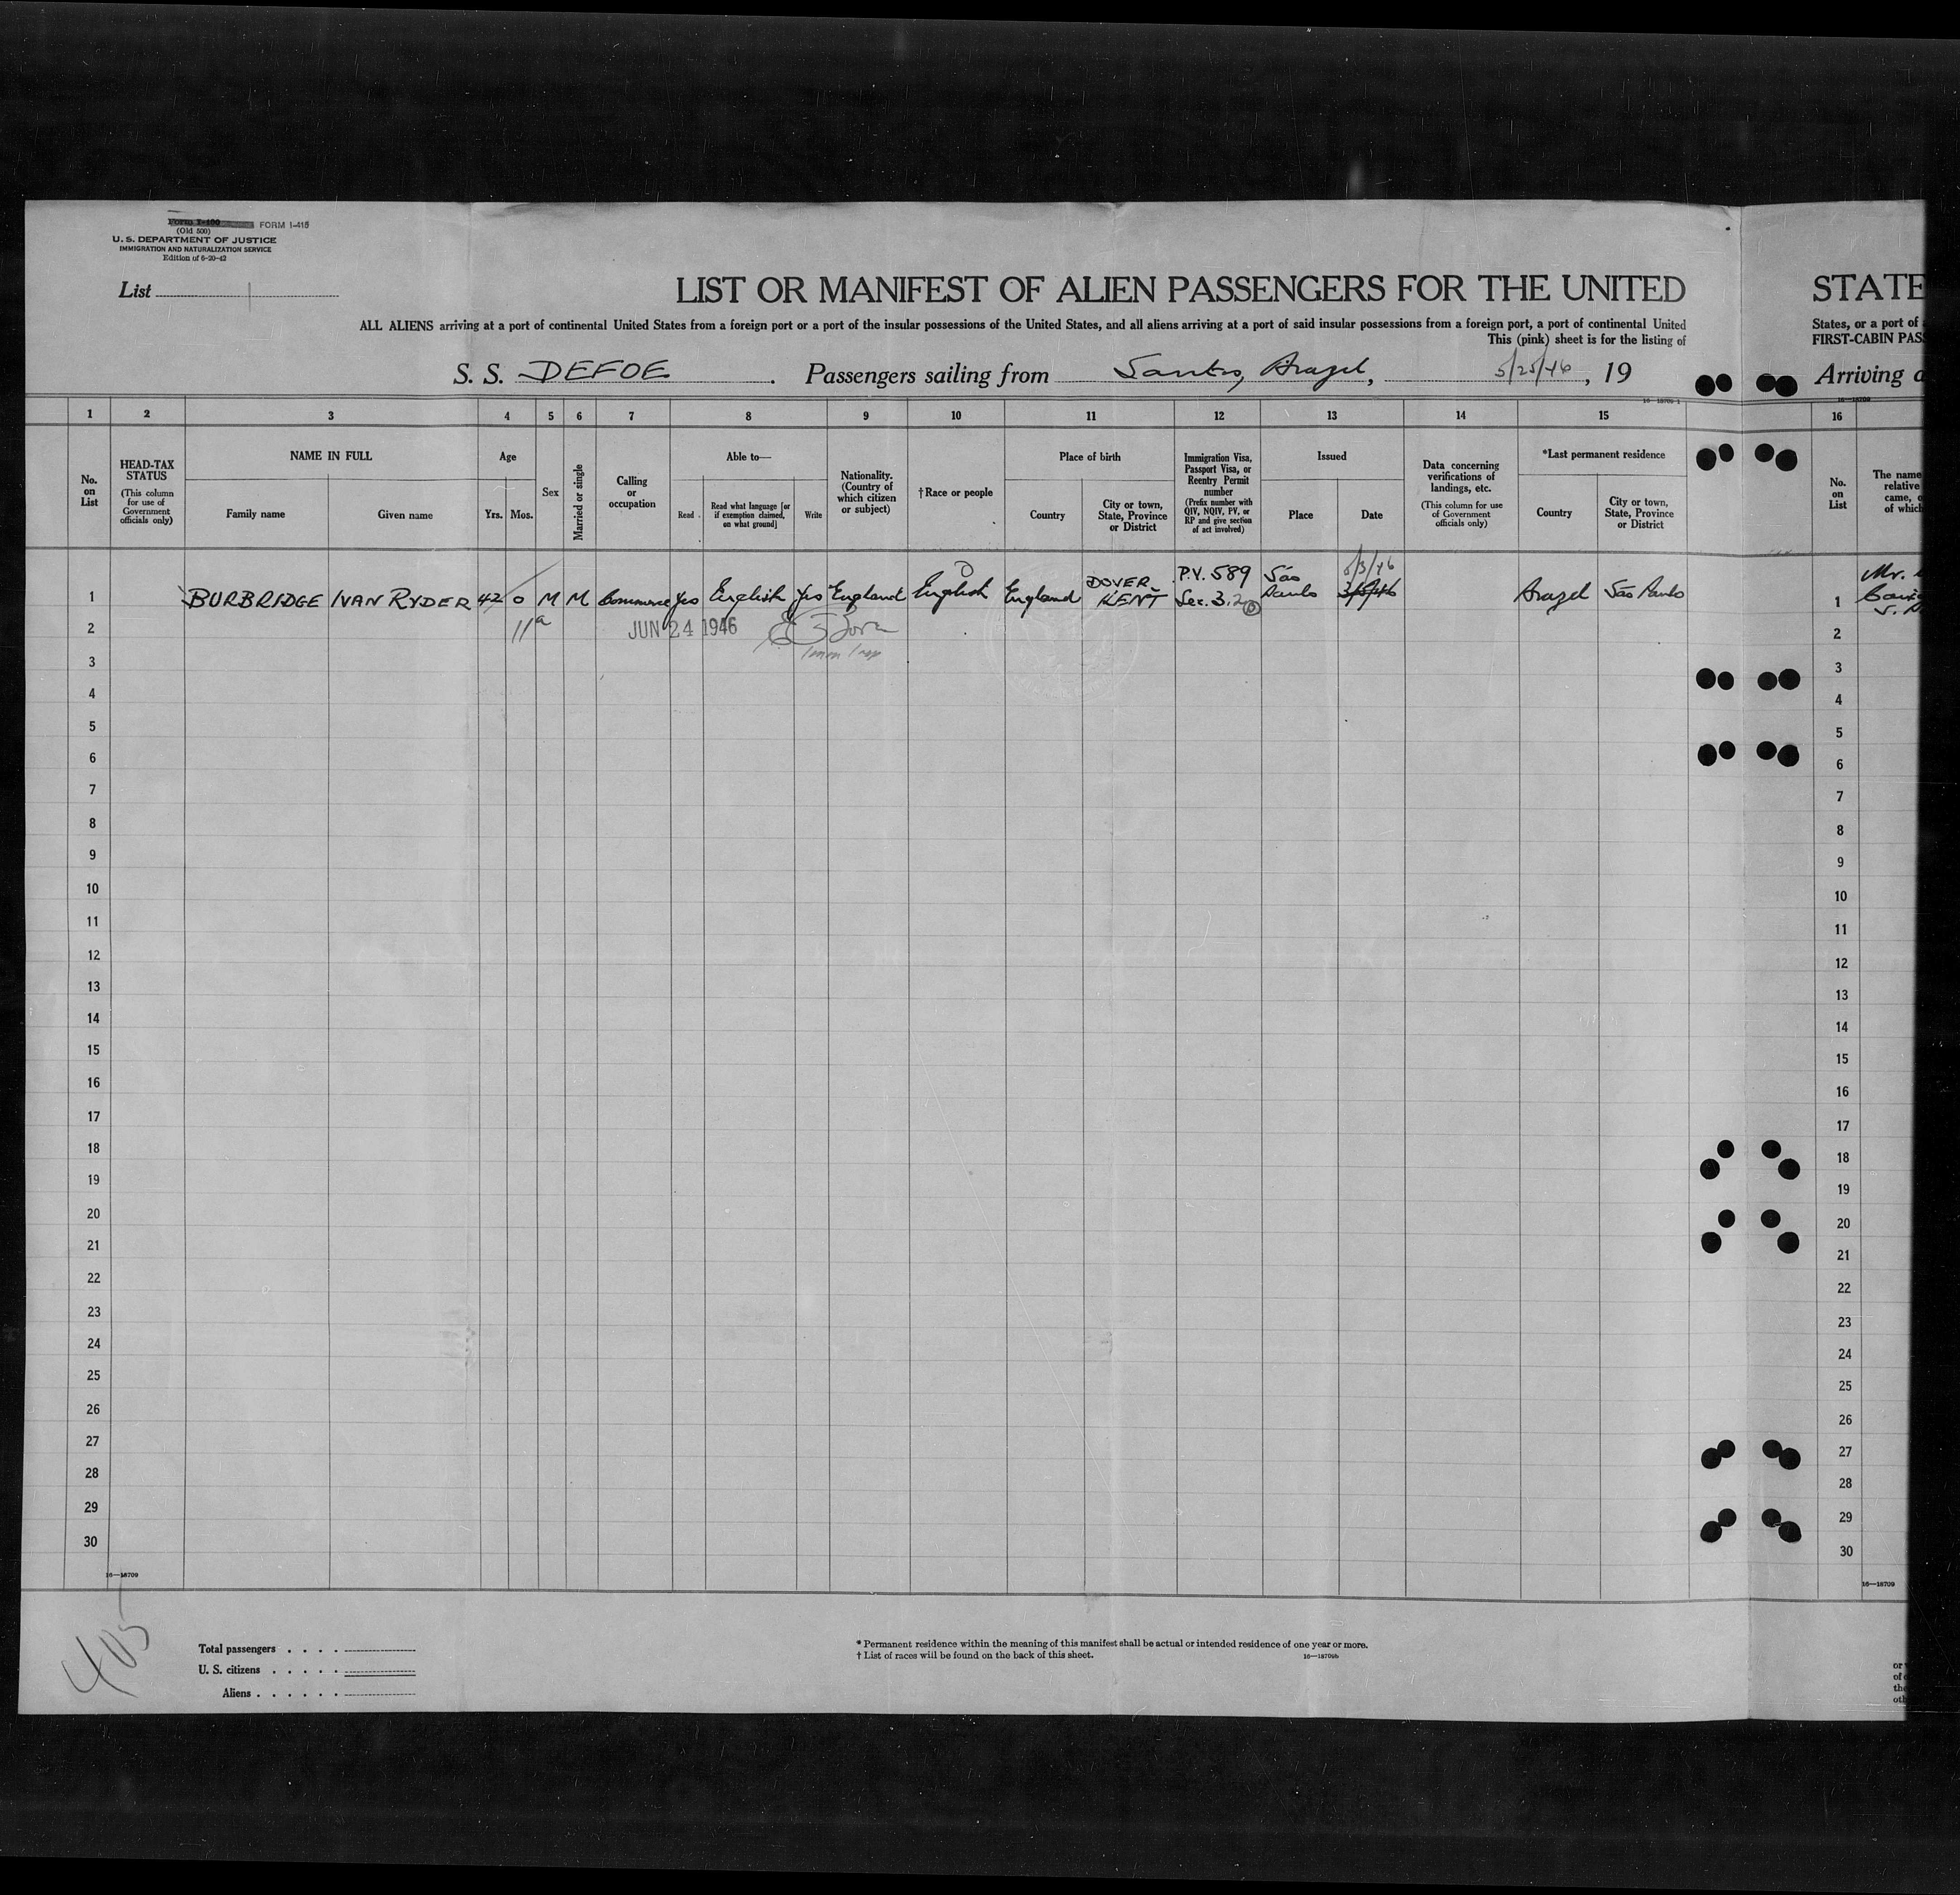 Form I-400 FORM I-415
(Old 500)
U. S. DEPARTMENT OF JUSTICE
IMMIGRATION AND NATURALIZATION SERVICE
Edition of 6-20-42
List 1
LIST OR MANIFEST OF ALIEN PASSENGERS FOR THE UNITED
STATE
ALL ALIENS arriving at a port of continental United States from a foreign port or a port of the insular possessions of the United States, and all aliens arriving at a port of said insular possessions from a foreign port, a port of continental United
States, or a port of
This (pink) sheet is for the listing of
FIRST-CABIN PAS
S. S. DEFOE . Passengers sailing from Santos, Brazil, 5/25/46, 19
Arriving a
16—18709-1
16—18709
1 2 3 4 5 6 7 8 9 10 11 12 13 14 15 16
No. on List
HEAD-TAX STATUS
(This column for use of Government officials only)
NAME IN FULL
Family name
Given name
Age
Yrs. Mos.
Sex
Married or single
Calling or occupation
Able to—
Read
Read what language [or if exemption claimed, on what ground]
Write
Nationality. (Country of which citizen or subject)
†Race or people
Place of birth
Country
City or town, State, Province or District
Immigration Visa, Passport Visa, or Reentry Permit number
(Prefix number with QIV, NQIV, PV, or RP and give section of act involved)
Issued
Place
Date
Data concerning verifications of landings, etc.
(This column for use of Government officials only)
*Last permanent residence
Country
City or town, State, Province or District
No. on List
The name
relative
came, o
of which
1 BURBRIDGE IVAN RYDER 42 0 M M Commerce Yes English Yes England English England DOVER KENT P.V. 589 Sec. 3.2 São Paulo 5/3/46 Brazil São Paulo 1 Mr.
11a
JUN 24 1946
2 2
3 3
4 4
5 5
6 6
7 7
8 8
9 9
10 10
11 11
12 12
13 13
14 14
15 15
16 16
17 17
18 18
19 19
20 20
21 21
22 22
23 23
24 24
25 25
26 26
27 27
28 28
29 29
30 30
16—18709
16—18709
405
Total passengers . . . .
U. S. citizens . . . . .
Aliens . . . . . .
* Permanent residence within the meaning of this manifest shall be actual or intended residence of one year or more.
† List of races will be found on the back of this sheet.
16—18709b
or
of
the
oth